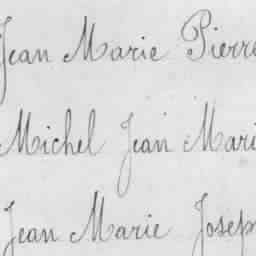 Jean Marie Pierre
Michel Jean Mari
Jean Marie Josep